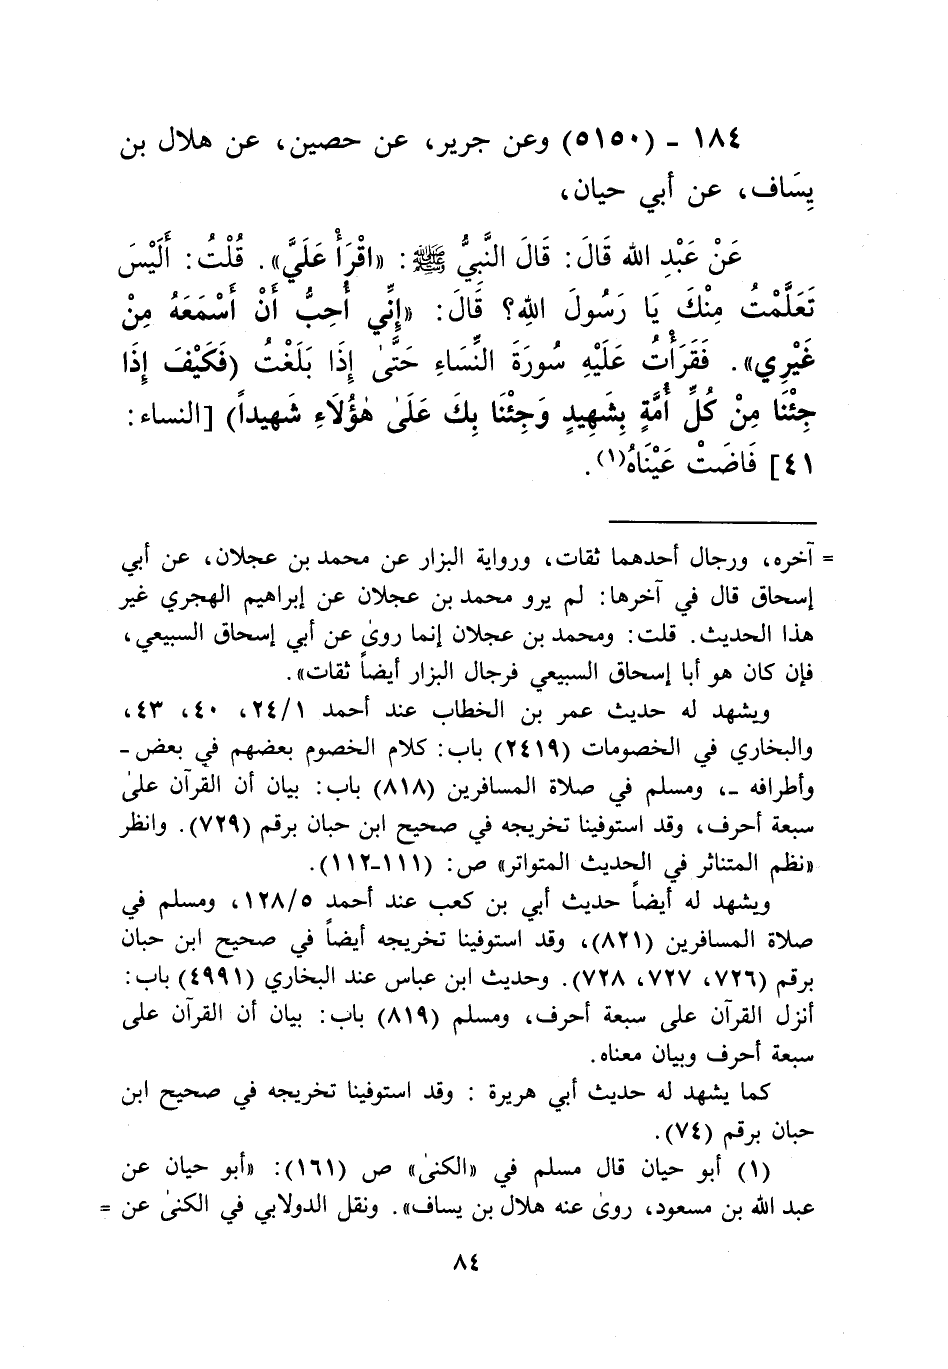 ١٨٤ - (٥١٥٠) وعن جرير، عن حصين، عن هلال بن
يِسَاف، عن أبي حيان،
عَنْ عَبْدِ الله قَالَ: قَالَ النَّبِيُّ ﷺ: «اقْرَأْ عَلَيَّ». قُلْتُ: أَلَيْسَ
تَعَلَّمْتُ مِنْكَ يَا رَسُولَ اللهِ؟ قَالَ: «إِنِّي أُحِبُّ أَنْ أَسْمَعَهُ مِنْ
غَيْرِي». فَقَرَأْتُ عَلَيْهِ سُورَةَ النِّسَاءِ حَتَّىٰ إِذَا بَلَغْتُ (فَكَيْفَ إِذَا
جِئْنَا مِنْ كُلِّ أُمَّةٍ بِشَهِيدٍ وَجِئْنَا بِكَ عَلَىٰ هٰؤُلَاءِ شَهِيداً) [النساء:
٤١] فَاضَتْ عَيْنَاهُ(١).
= آخره، ورجال أحدهما ثقات، ورواية البزار عن محمد بن عجلان، عن أبي
إسحاق قال في آخرها: لم يرو محمد بن عجلان عن إبراهيم الهجري غير
هذا الحديث. قلت: ومحمد بن عجلان إنما روىٰ عن أبي إسحاق السبيعي،
فإن كان هو أبا إسحاق السبيعي فرجال البزار أيضاً ثقات».
ويشهد له حديث عمر بن الخطاب عند أحمد ٢٤/١، ٤٠، ٤٣،
والبخاري في الخصومات (٢٤١٩) باب: كلام الخصوم بعضهم في بعض-
وأطرافه -، ومسلم في صلاة المسافرين (٨١٨) باب: بيان أن القرآن علىٰ
سبعة أحرف، وقد استوفينا تخريجه في صحيح ابن حبان برقم (٧٢٩). وانظر
«نظم المتناثر في الحديث المتواتر» ص: (١١١-١١٢).
ويشهد له أيضاً حديث أبي بن كعب عند أحمد ١٢٨/٥، ومسلم في
صلاة المسافرين (٨٢١)، وقد استوفينا تخريجه أيضاً في صحيح ابن حبان
برقم (٧٢٦، ٧٢٧، ٧٢٨). وحديث ابن عباس عند البخاري (٤٩٩١) باب:
أنزل القرآن على سبعة أحرف، ومسلم (٨١٩) باب: بيان أن القرآن على
سبعة أحرف وبيان معناه.
كما يشهد له حديث أبي هريرة : وقد استوفينا تخريجه في صحيح ابن
حبان برقم (٧٤).
(١) أبو حيان قال مسلم في «الكنىٰ» ص (١٦١): «أبو حيان عن
عبد الله بن مسعود، روىٰ عنه هلال بن يساف». ونقل الدولابي في الكنىٰ عن =
٨٤